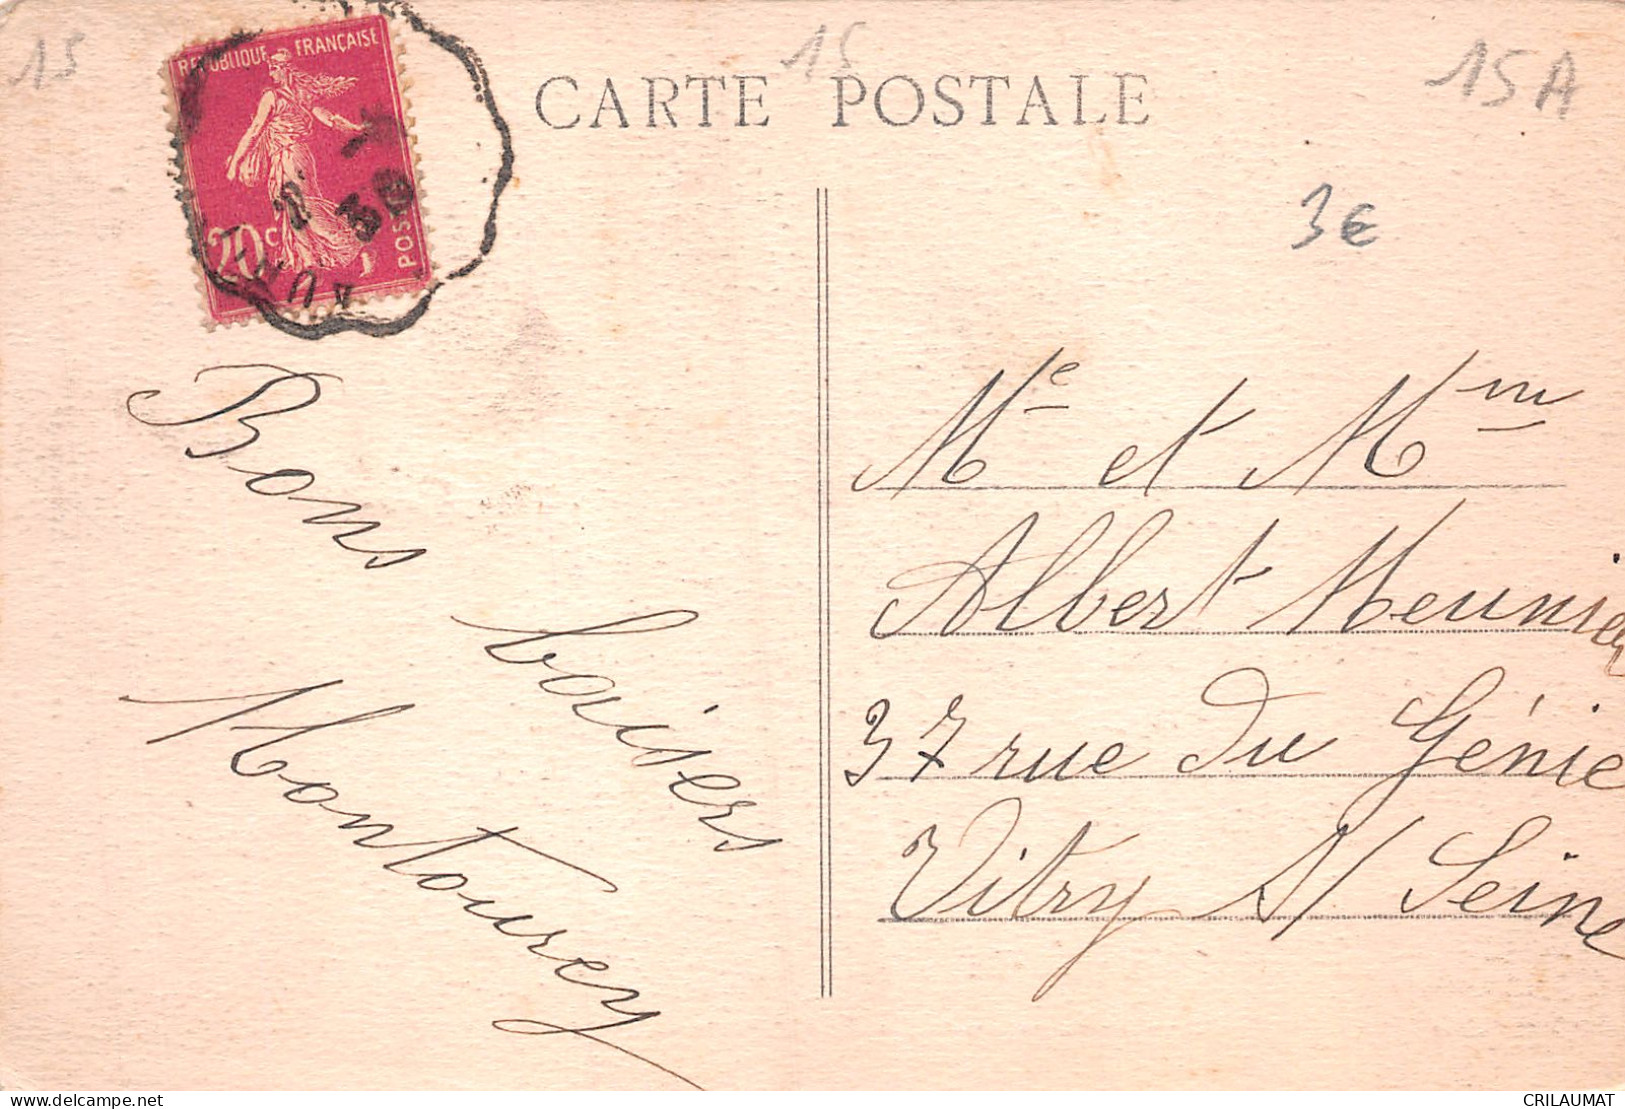 15
15
15A
REPUBLIQUE FRANÇAISE
20c
POSTES
CARTE POSTALE
3€
Bons baisers
Montourey
Me et Mm
Albert Meunier
37 rue du Génie
Vitry s/ Seine
delcampe.net
CRILAUMAT